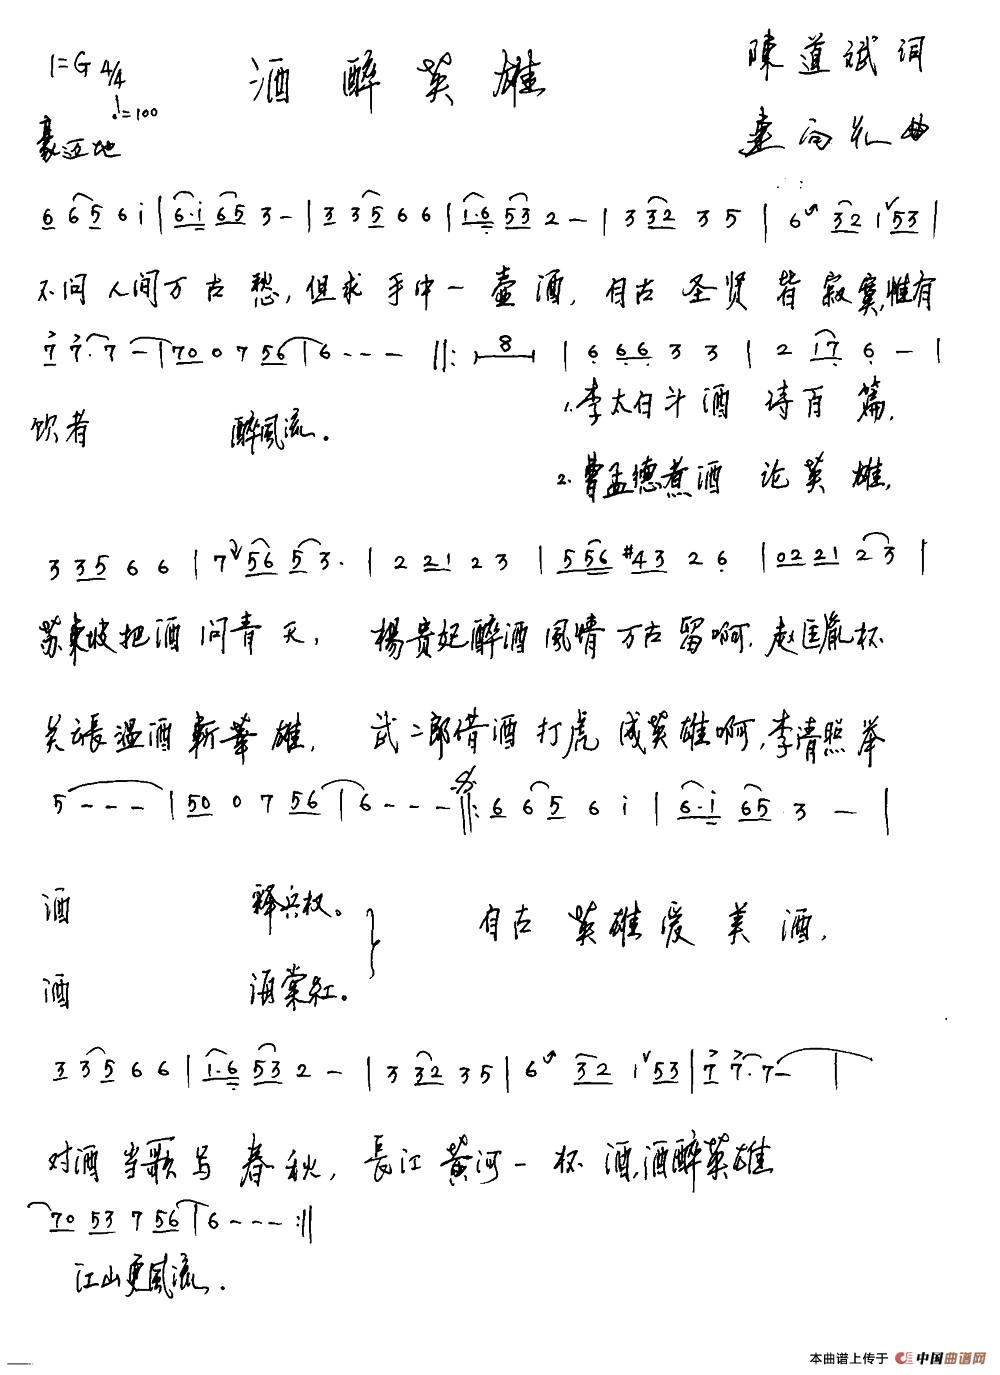 1=G 4/4
♩=100
豪迈地
酒醉英雄
陳道斌 词
曲
6 6 5 6 i | 6·i 6 5 3 - | 3 3 5 6 6 | 1·6 5 3 2 - | 3 3 2 3 5 | 6 3 2 1 5 3 |
不问人间万古愁,但求手中一壶酒,自古圣贤皆寂寞,惟有
7 7·7 - | 7 0 0 7 5 6 | 6 - - - ||: 8 | 6 6 6 3 3 | 2 1 7 6 - |
饮者 醉風流.
1.李太白斗酒诗百篇,
2.曹孟德煮酒论英雄,
3 3 5 6 6 | 7 5 6 5 3· | 2 2 1 2 3 | 5 5 6 #4 3 2 6 | 0 2 2 1 2 3 |
苏東坡把酒问青天, 楊贵妃醉酒風情万古留啊.赵匡胤杯
关張温酒斬華雄, 武二郎借酒打虎成英雄啊,李清照举
5 - - - | 5 0 0 7 5 6 | 6 - - - ||: 6 6 5 6 i | 6·i 6 5 3 - |
酒 释兵权。
自古英雄爱美酒,
酒 海棠紅。
3 3 5 6 6 | 1·6 5 3 2 - | 3 3 2 3 5 | 6 3 2 1 5 3 | 7 7·7 - |
对酒当歌写春秋,長江黄河一杯酒,酒醉英雄
7 0 5 3 7 5 6 | 6 - - - :||
江山更風流.
本曲谱上传于 中国曲谱网